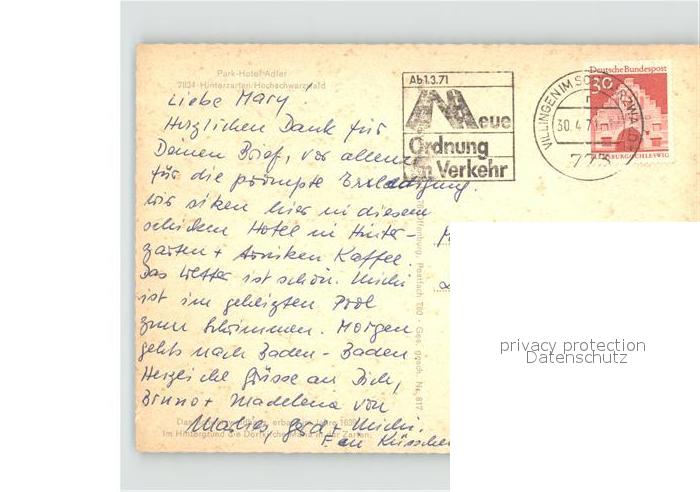 Park-Hotel Adler
7824 Hinterzarten/Hochschwarzwald
Liebe Mary
Herzlichen Dank für
Deinen Brief, vor allem
für die prompte Erledigung.
Wir sitzen hier in diesem
schicken Hotel in Hinter-
zarten + trinken Kaffee.
Das Wetter ist schön. Michi
ist im geheizten Pool
zum Schwimmen. Morgen
gehts nach Baden-Baden
Herzliche Grüsse an Dich,
Bruno + Madelena von
Marlies, Gerd + Michi.
Im Hintergrund die Dorfkirche
in der Zarten.
Ab 1.3.71
Neue
Ordnung
im Verkehr
VILLINGEN IM SCHWARZWALD
30.4.71
773
Deutsche Bundespost
30
FLENSBURG/SCHLESWIG
Offenburg, Postfach 180 - Ges. gesch. Nr. 817
privacy protection
Datenschutz